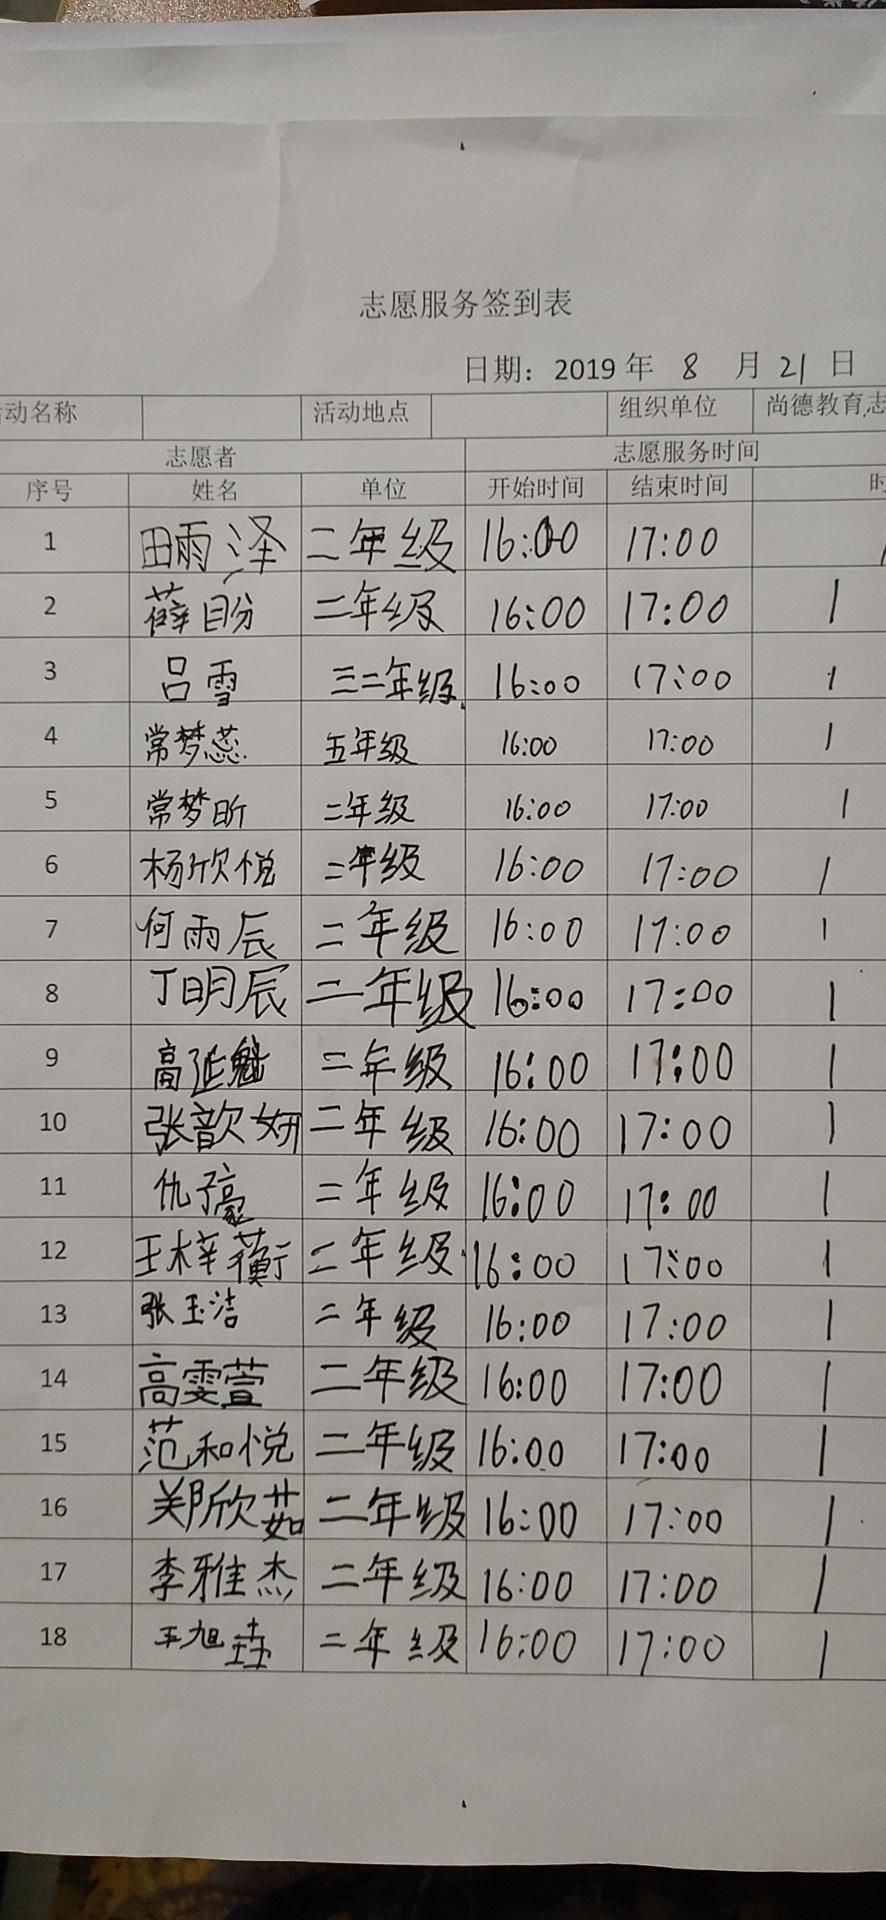 志愿服务签到表
日期：2019 年 8 月 21 日
动名称 活动地点 组织单位 尚德教育志
志愿者 志愿服务时间
序号 姓名 单位 开始时间 结束时间 时
1 田雨泽 二年级 16:00 17:00
2 薛盼 二年级 16:00 17:00 1
3 吕雪 三二年级 16:00 17:00 1
4 常梦蕊 五年级 16:00 17:00 1
5 常梦昕 二年级 16:00 17:00 1
6 杨欣悦 二年级 16:00 17:00 1
7 何雨辰 二年级 16:00 17:00 1
8 丁明辰 二年级 16:00 17:00 1
9 高延魁 二年级 16:00 17:00 1
10 张歆妍 二年级 16:00 17:00 1
11 仇子豪 二年级 16:00 17:00 1
12 王梓蘅 二年级 16:00 17:00 1
13 张玉洁 二年级 16:00 17:00 1
14 高雯萱 二年级 16:00 17:00 1
15 范和悦 二年级 16:00 17:00 1
16 郑欣茹 二年级 16:00 17:00 1
17 李雅杰 二年级 16:00 17:00 1
18 王旭垚 二年级 16:00 17:00 1